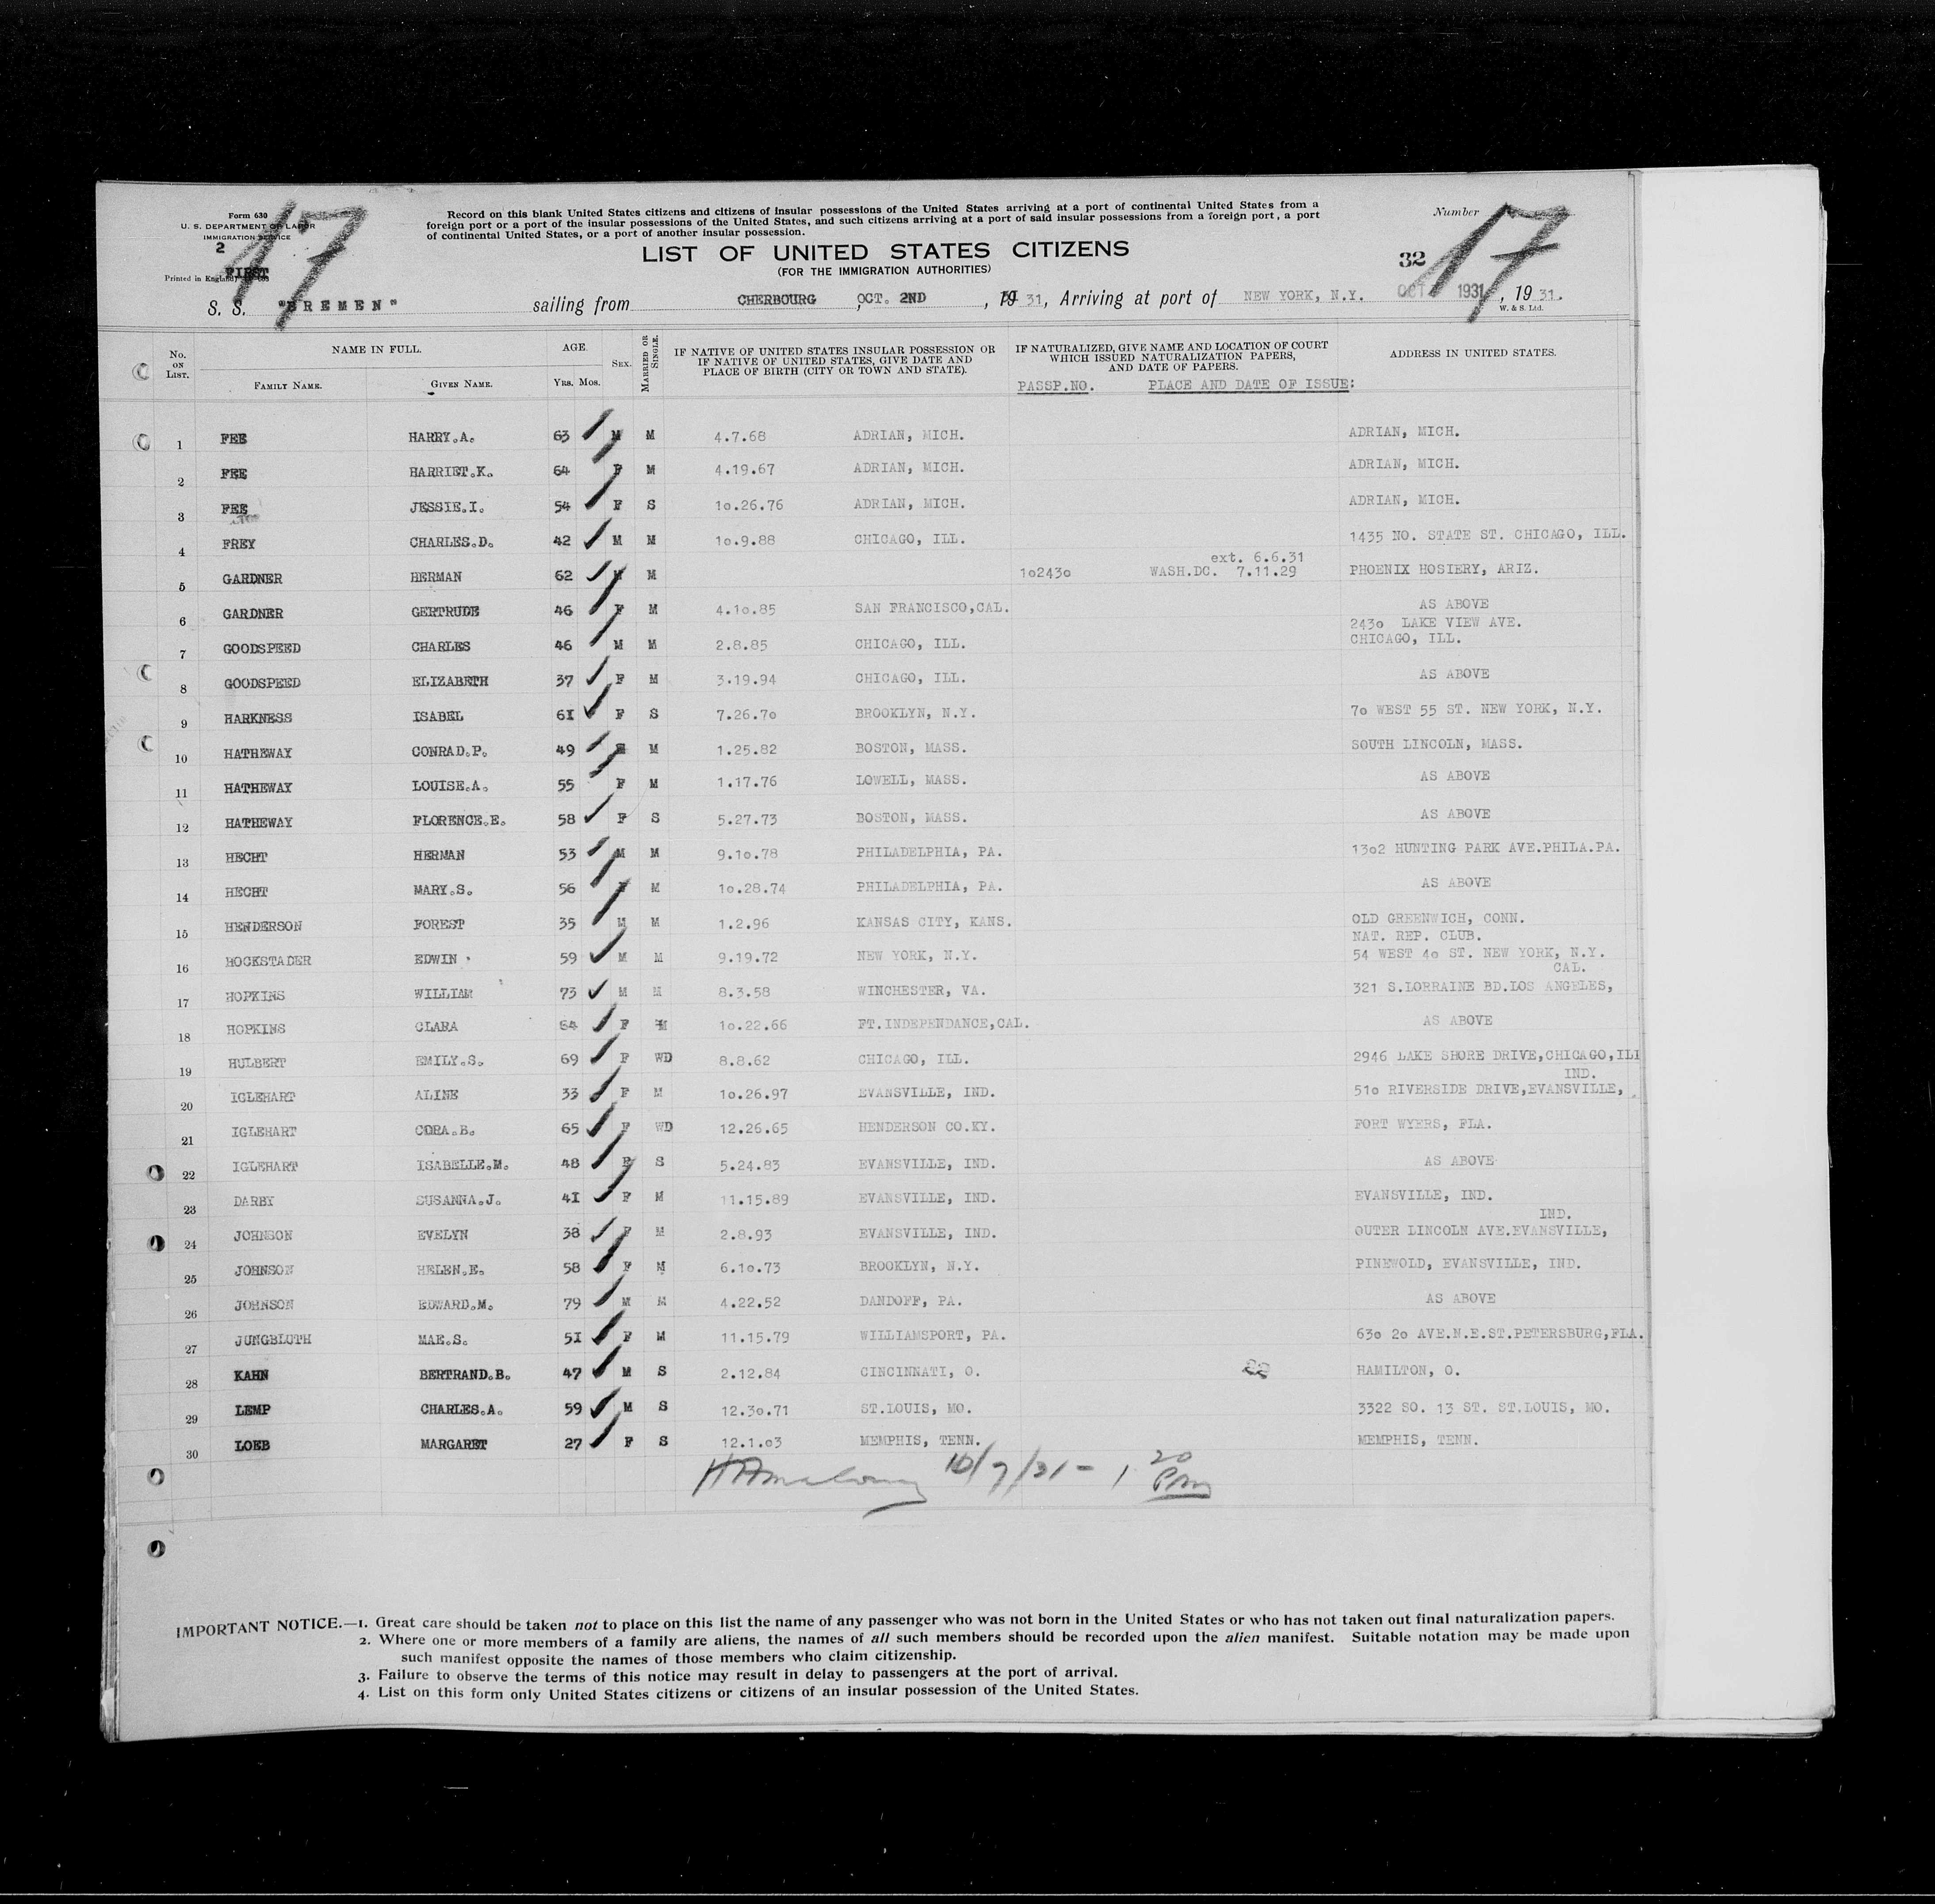 Form 630
U. S. DEPARTMENT OF LABOR
IMMIGRATION SERVICE
2
FIRST
Printed in England
17
Record on this blank United States citizens and citizens of insular possessions of the United States arriving at a port of continental United States from a
foreign port or a port of the insular possessions of the United States, and such citizens arriving at a port of said insular possessions from a foreign port, a port
of continental United States, or a port of another insular possession.
LIST OF UNITED STATES CITIZENS
(FOR THE IMMIGRATION AUTHORITIES)
Number
32
17
S. S. "BREMEN" sailing from CHERBOURG, OCT. 2ND, 19 31, Arriving at port of NEW YORK, N.Y. OCT 1931, 19 31.
W. & S. Ltd.
No. ON LIST. NAME IN FULL. AGE. SEX. MARRIED OR SINGLE. IF NATIVE OF UNITED STATES INSULAR POSSESSION OR IF NATIVE OF UNITED STATES, GIVE DATE AND PLACE OF BIRTH (CITY OR TOWN AND STATE). IF NATURALIZED, GIVE NAME AND LOCATION OF COURT WHICH ISSUED NATURALIZATION PAPERS, AND DATE OF PAPERS. ADDRESS IN UNITED STATES.
FAMILY NAME. GIVEN NAME. YRS. MOS. PASSP.NO. PLACE AND DATE OF ISSUE:
1 FEE HARRY.A. 63 M M 4.7.68 ADRIAN, MICH. ADRIAN, MICH.
2 FEE HARRIET.K. 64 F M 4.19.67 ADRIAN, MICH. ADRIAN, MICH.
3 FEE JESSIE.I. 54 F S 10.26.76 ADRIAN, MICH. ADRIAN, MICH.
4 FREY CHARLES.D. 42 M M 10.9.88 CHICAGO, ILL. 1435 NO. STATE ST. CHICAGO, ILL.
ext. 6.6.31
5 GARDNER HERMAN 62 M M 102430 WASH.DC. 7.11.29 PHOENIX HOSIERY, ARIZ.
6 GARDNER GERTRUDE 46 F M 4.10.85 SAN FRANCISCO,CAL. AS ABOVE
2430 LAKE VIEW AVE.
7 GOODSPEED CHARLES 46 M M 2.8.85 CHICAGO, ILL. CHICAGO, ILL.
8 GOODSPEED ELIZABETH 37 F M 3.19.94 CHICAGO, ILL. AS ABOVE
9 HARKNESS ISABEL 61 F S 7.26.70 BROOKLYN, N.Y. 70 WEST 55 ST. NEW YORK, N.Y.
10 HATHEWAY CONRAD.P. 49 M 1.25.82 BOSTON, MASS. SOUTH LINCOLN, MASS.
11 HATHEWAY LOUISE.A. 55 F M 1.17.76 LOWELL, MASS. AS ABOVE
12 HATHEWAY FLORENCE.E. 58 F S 5.27.73 BOSTON, MASS. AS ABOVE
13 HECHT HERMAN 53 M M 9.10.78 PHILADELPHIA, PA. 1302 HUNTING PARK AVE.PHILA.PA.
14 HECHT MARY.S. 56 F M 10.28.74 PHILADELPHIA, PA. AS ABOVE
15 HENDERSON FOREST 35 M M 1.2.96 KANSAS CITY, KANS. OLD GREENWICH, CONN.
NAT. REP. CLUB.
16 HOCKSTADER EDWIN 59 M M 9.19.72 NEW YORK, N.Y. 54 WEST 40 ST. NEW YORK, N.Y.
CAL.
17 HOPKINS WILLIAM 73 M M 8.3.58 WINCHESTER, VA. 321 S.LORRAINE BD.LOS ANGELES,
18 HOPKINS CLARA 64 F M 10.22.66 FT.INDEPENDANCE,CAL. AS ABOVE
19 HULBERT EMILY.S. 69 F WD 8.8.62 CHICAGO, ILL. 2946 LAKE SHORE DRIVE,CHICAGO,ILL
IND.
20 IGLEHART ALINE 33 F M 10.26.97 EVANSVILLE, IND. 510 RIVERSIDE DRIVE,EVANSVILLE,
21 IGLEHART CORA.B. 65 F WD 12.26.65 HENDERSON CO.KY. FORT WYERS, FLA.
22 IGLEHART ISABELLE.M. 48 F S 5.24.83 EVANSVILLE, IND. AS ABOVE
23 DARBY SUSANNA.J. 41 F M 11.15.89 EVANSVILLE, IND. EVANSVILLE, IND.
IND.
24 JOHNSON EVELYN 38 F M 2.8.93 EVANSVILLE, IND. OUTER LINCOLN AVE.EVANSVILLE,
25 JOHNSON HELEN.E. 58 F M 6.10.73 BROOKLYN, N.Y. PINEWOLD, EVANSVILLE, IND.
26 JOHNSON EDWARD.M. 79 M M 4.22.52 DANDOFF, PA. AS ABOVE
27 JUNGBLUTH MAE.S. 51 F M 11.15.79 WILLIAMSPORT, PA. 630 20 AVE.N.E.ST.PETERSBURG,FLA.
28 KAHN BERTRAND.B. 47 M S 2.12.84 CINCINNATI, O. HAMILTON, O.
29 LEMP CHARLES.A. 59 M S 12.30.71 ST.LOUIS, MO. 3322 SO. 13 ST. ST.LOUIS, MO.
30 LOEB MARGARET 27 F S 12.1.03 MEMPHIS, TENN. MEMPHIS, TENN.
10/7/31 - 1 20 Pm
IMPORTANT NOTICE.—1. Great care should be taken not to place on this list the name of any passenger who was not born in the United States or who has not taken out final naturalization papers.
2. Where one or more members of a family are aliens, the names of all such members should be recorded upon the alien manifest. Suitable notation may be made upon
such manifest opposite the names of those members who claim citizenship.
3. Failure to observe the terms of this notice may result in delay to passengers at the port of arrival.
4. List on this form only United States citizens or citizens of an insular possession of the United States.